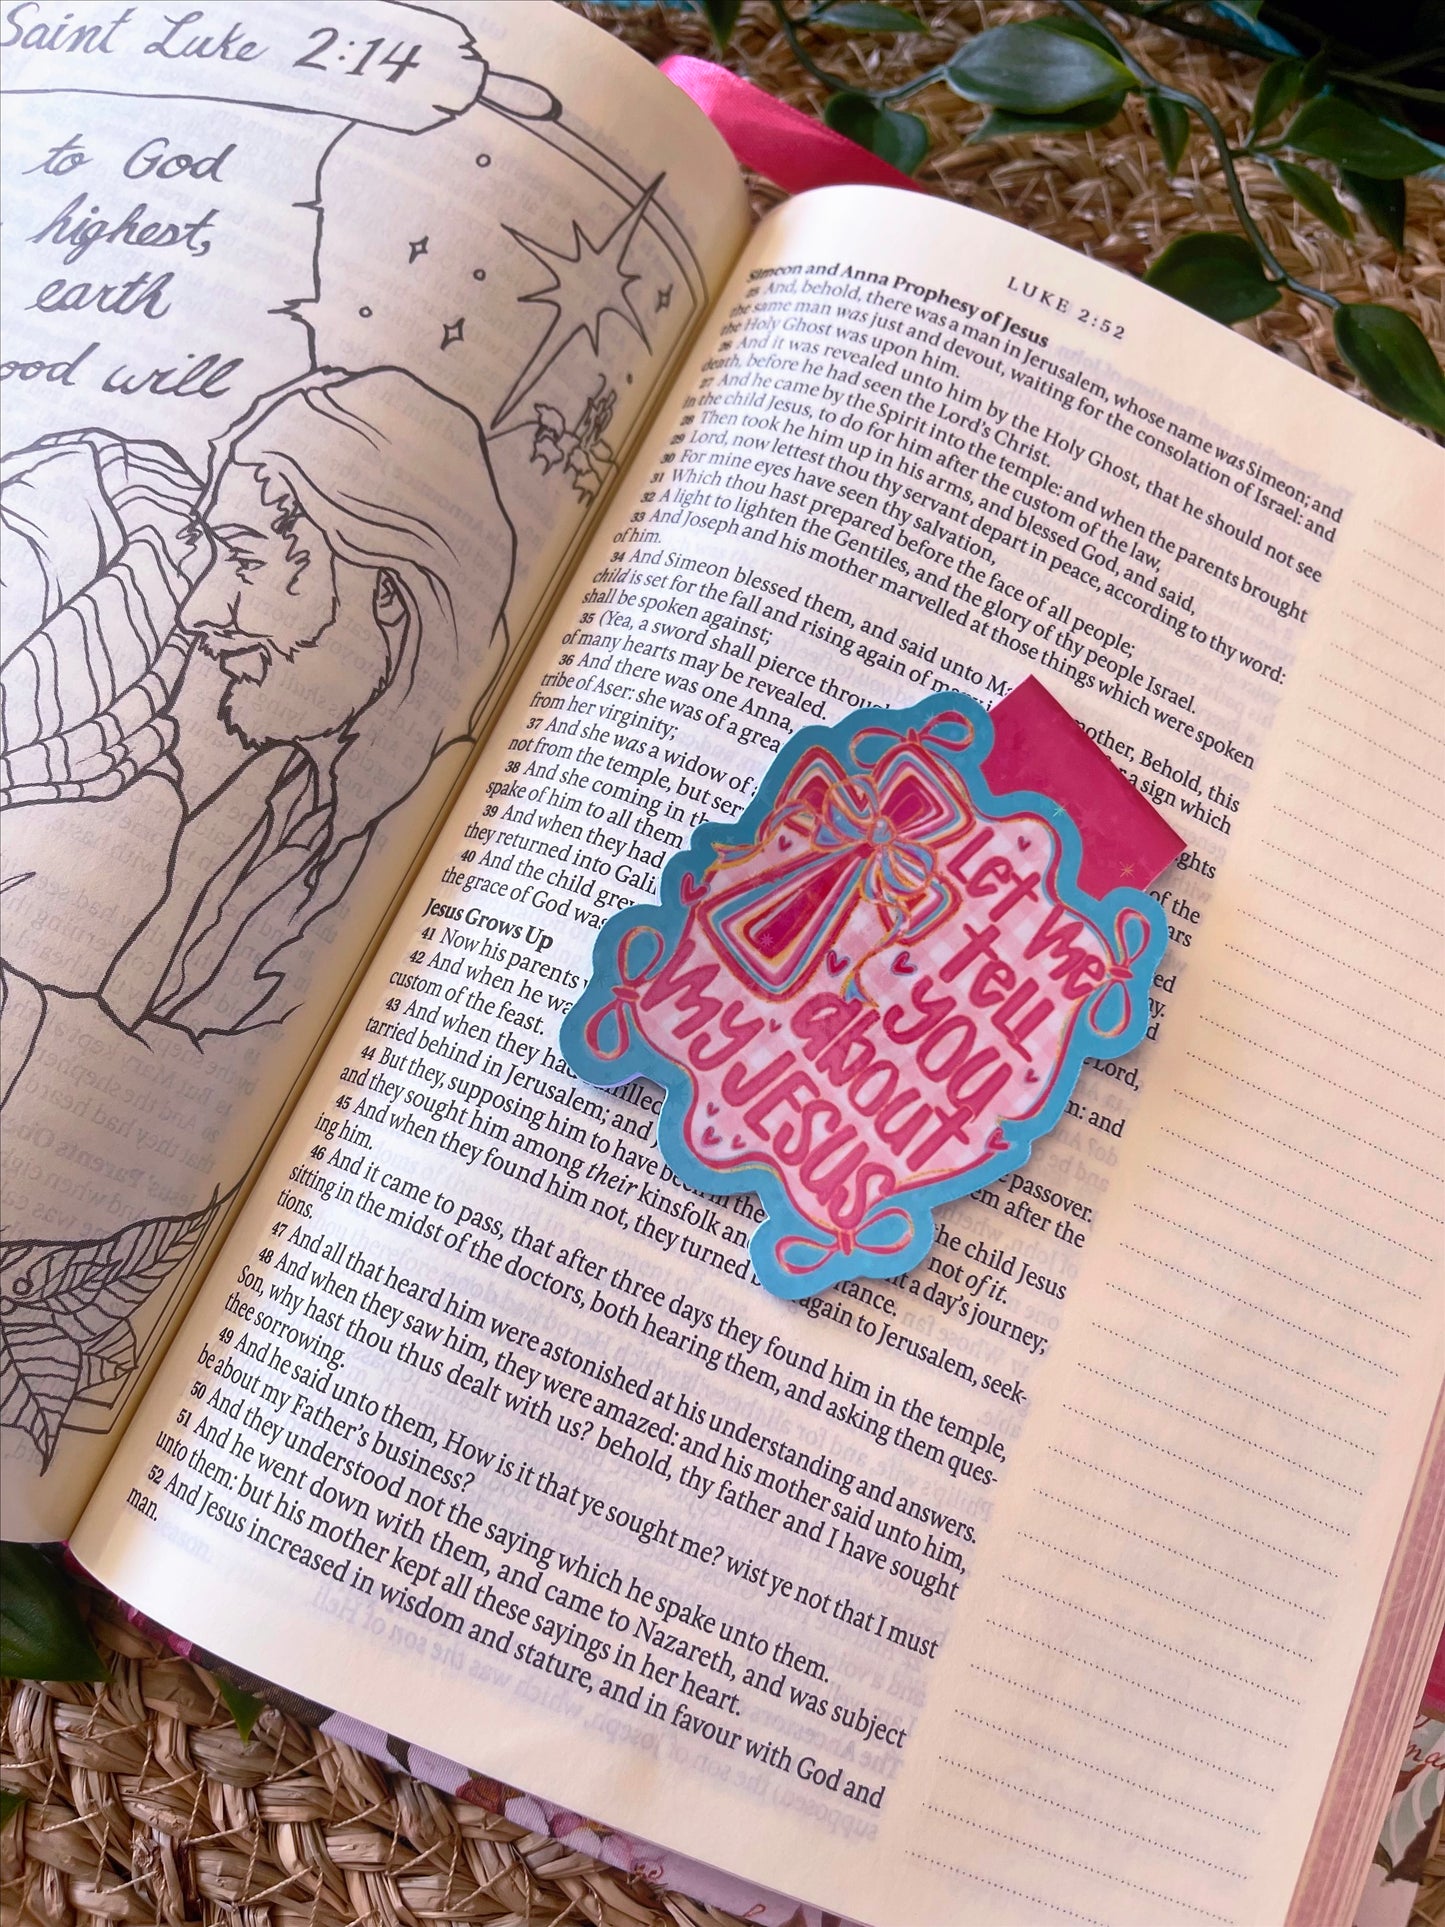 Saint Luke 2:14
to God
highest,
earth
good will
LUKE 2:52
Simeon and Anna Prophesy of Jesus
25 And, behold, there was a man in Jerusalem, whose name was Simeon; and
the same man was just and devout, waiting for the consolation of Israel: and
the Holy Ghost was upon him.
26 And it was revealed unto him by the Holy Ghost, that he should not see
death, before he had seen the Lord's Christ.
27 And he came by the Spirit into the temple: and when the parents brought
in the child Jesus, to do for him after the custom of the law,
28 Then took he him up in his arms, and blessed God, and said,
29 Lord, now lettest thou thy servant depart in peace, according to thy word:
30 For mine eyes have seen thy salvation,
31 Which thou hast prepared before the face of all people;
32 A light to lighten the Gentiles, and the glory of thy people Israel.
33 And Joseph and his mother marvelled at those things which were spoken
of him.
34 And Simeon blessed them, and said unto mother, Behold, this
child is set for the fall and rising again of a sign which
shall be spoken against;
35 (Yea, a sword shall pierce through
of many hearts may be revealed.
36 And there was one Anna, of the
tribe of Aser: she was of a great
from her virginity;
37 And she was a widow of
not from the temple, but
38 And she coming in Lord,
spake of him to all them
39 And when they had
they returned into
40 And the child grew and
the grace of God was
Jesus Grows Up
41 Now his parents passover.
42 And when he was after the
custom of the feast.
43 And when they had fulfilled the child Jesus
tarried behind in Jerusalem; and not of it.
44 But they, supposing him to have been in the a day's journey;
and they sought him among their kinsfolk and
45 And when they found him not, they turned again to Jerusalem, seek-
ing him.
46 And it came to pass, that after three days they found him in the temple,
sitting in the midst of the doctors, both hearing them, and asking them ques-
tions.
47 And all that heard him were astonished at his understanding and answers.
48 And when they saw him, they were amazed: and his mother said unto him,
Son, why hast thou thus dealt with us? behold, thy father and I have sought
thee sorrowing.
49 And he said unto them, How is it that ye sought me? wist ye not that I must
be about my Father's business?
50 And they understood not the saying which he spake unto them.
51 And he went down with them, and came to Nazareth, and was subject
unto them: but his mother kept all these sayings in her heart.
52 And Jesus increased in wisdom and stature, and in favour with God and
man.
Let me
tell
you
about
my JESUS